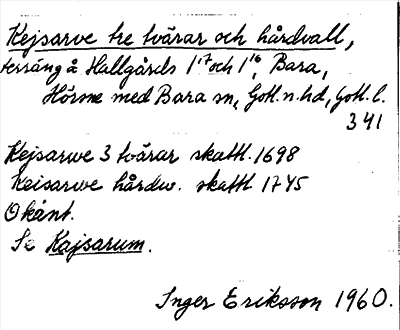 Kejsarve tre tvärar och hårdvall,
terräng å Hallgårds 1¹⁷ och 1¹⁶, Bara,
Hörsne med Bara sn, Gotl. n. hd, Gotl. l.
341
Kejsarwe 3 tvärar skattl. 1698
Keisarwe hårdw. skattl 1745
Okänt.
Se Kajsarum.
Inger Eriksson 1960.